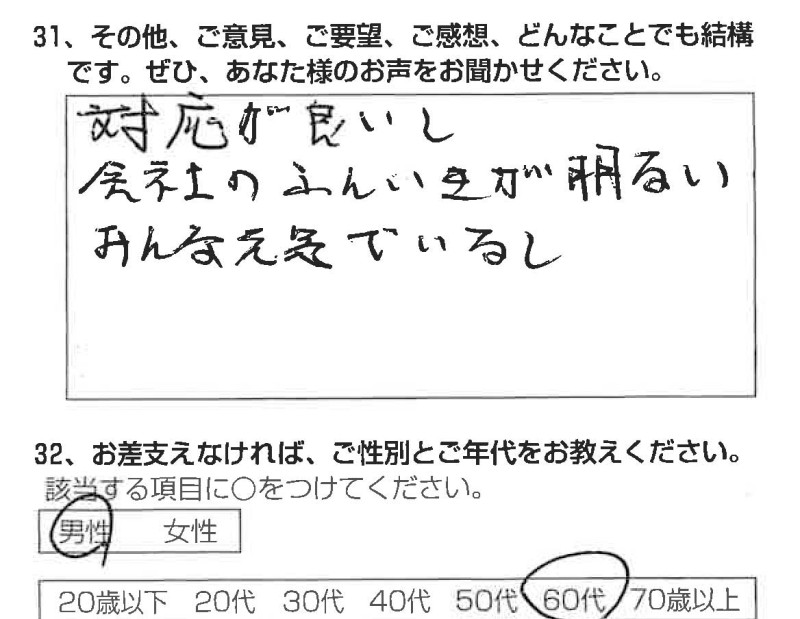 31、その他、ご意見、ご要望、ご感想、どんなことでも結構
です。ぜひ、あなた様のお声をお聞かせください。
対応が良いし
会社のふんいきが明るい
みんな元気でいるし
32、お差支えなければ、ご性別とご年代をお教えください。
該当する項目に○をつけてください。
男性 女性
20歳以下 20代 30代 40代 50代 60代 70歳以上